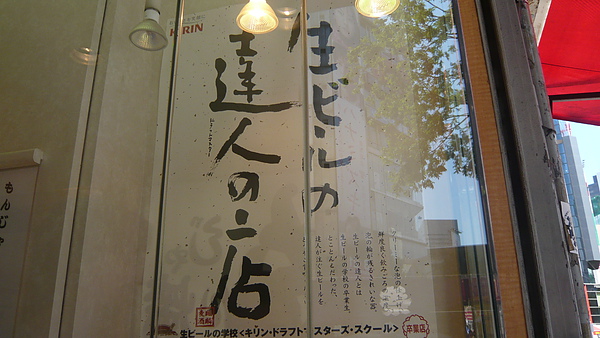 KIRIN
生ビールの
達人の店
クリーミーな泡の
鮮度良く飲みごろ
泡の輪が残るきれいな器。
生ビールの達人とは
生ビールの学校の卒業生。
とことんこだわった、
達人が注ぐ生ビールを
生ビールの学校<キリン・ドラフトマスターズ・スクール>
卒業店
もんじゃ